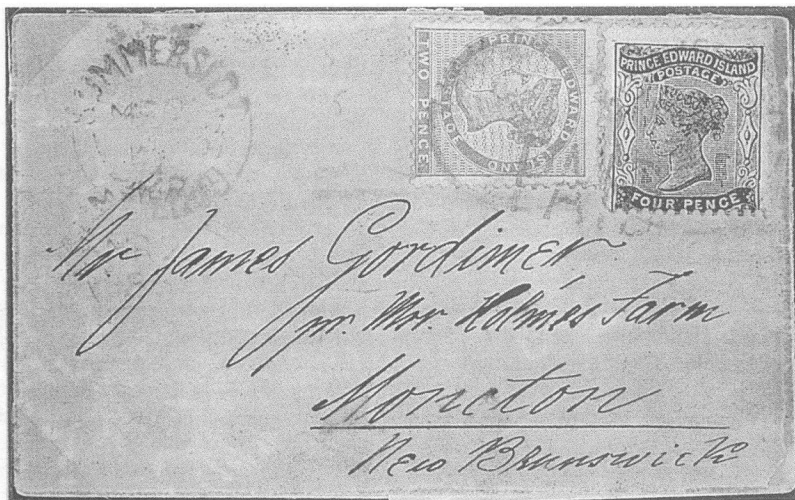 SUMMERSIDE
TWO PENCE
PRINCE EDWARD ISLAND
POSTAGE
PRINCE EDWARD ISLAND
POSTAGE
FOUR PENCE
Mr James Gordimer
pr. Mor. Holme's Farm
Moncton
New Brunswick